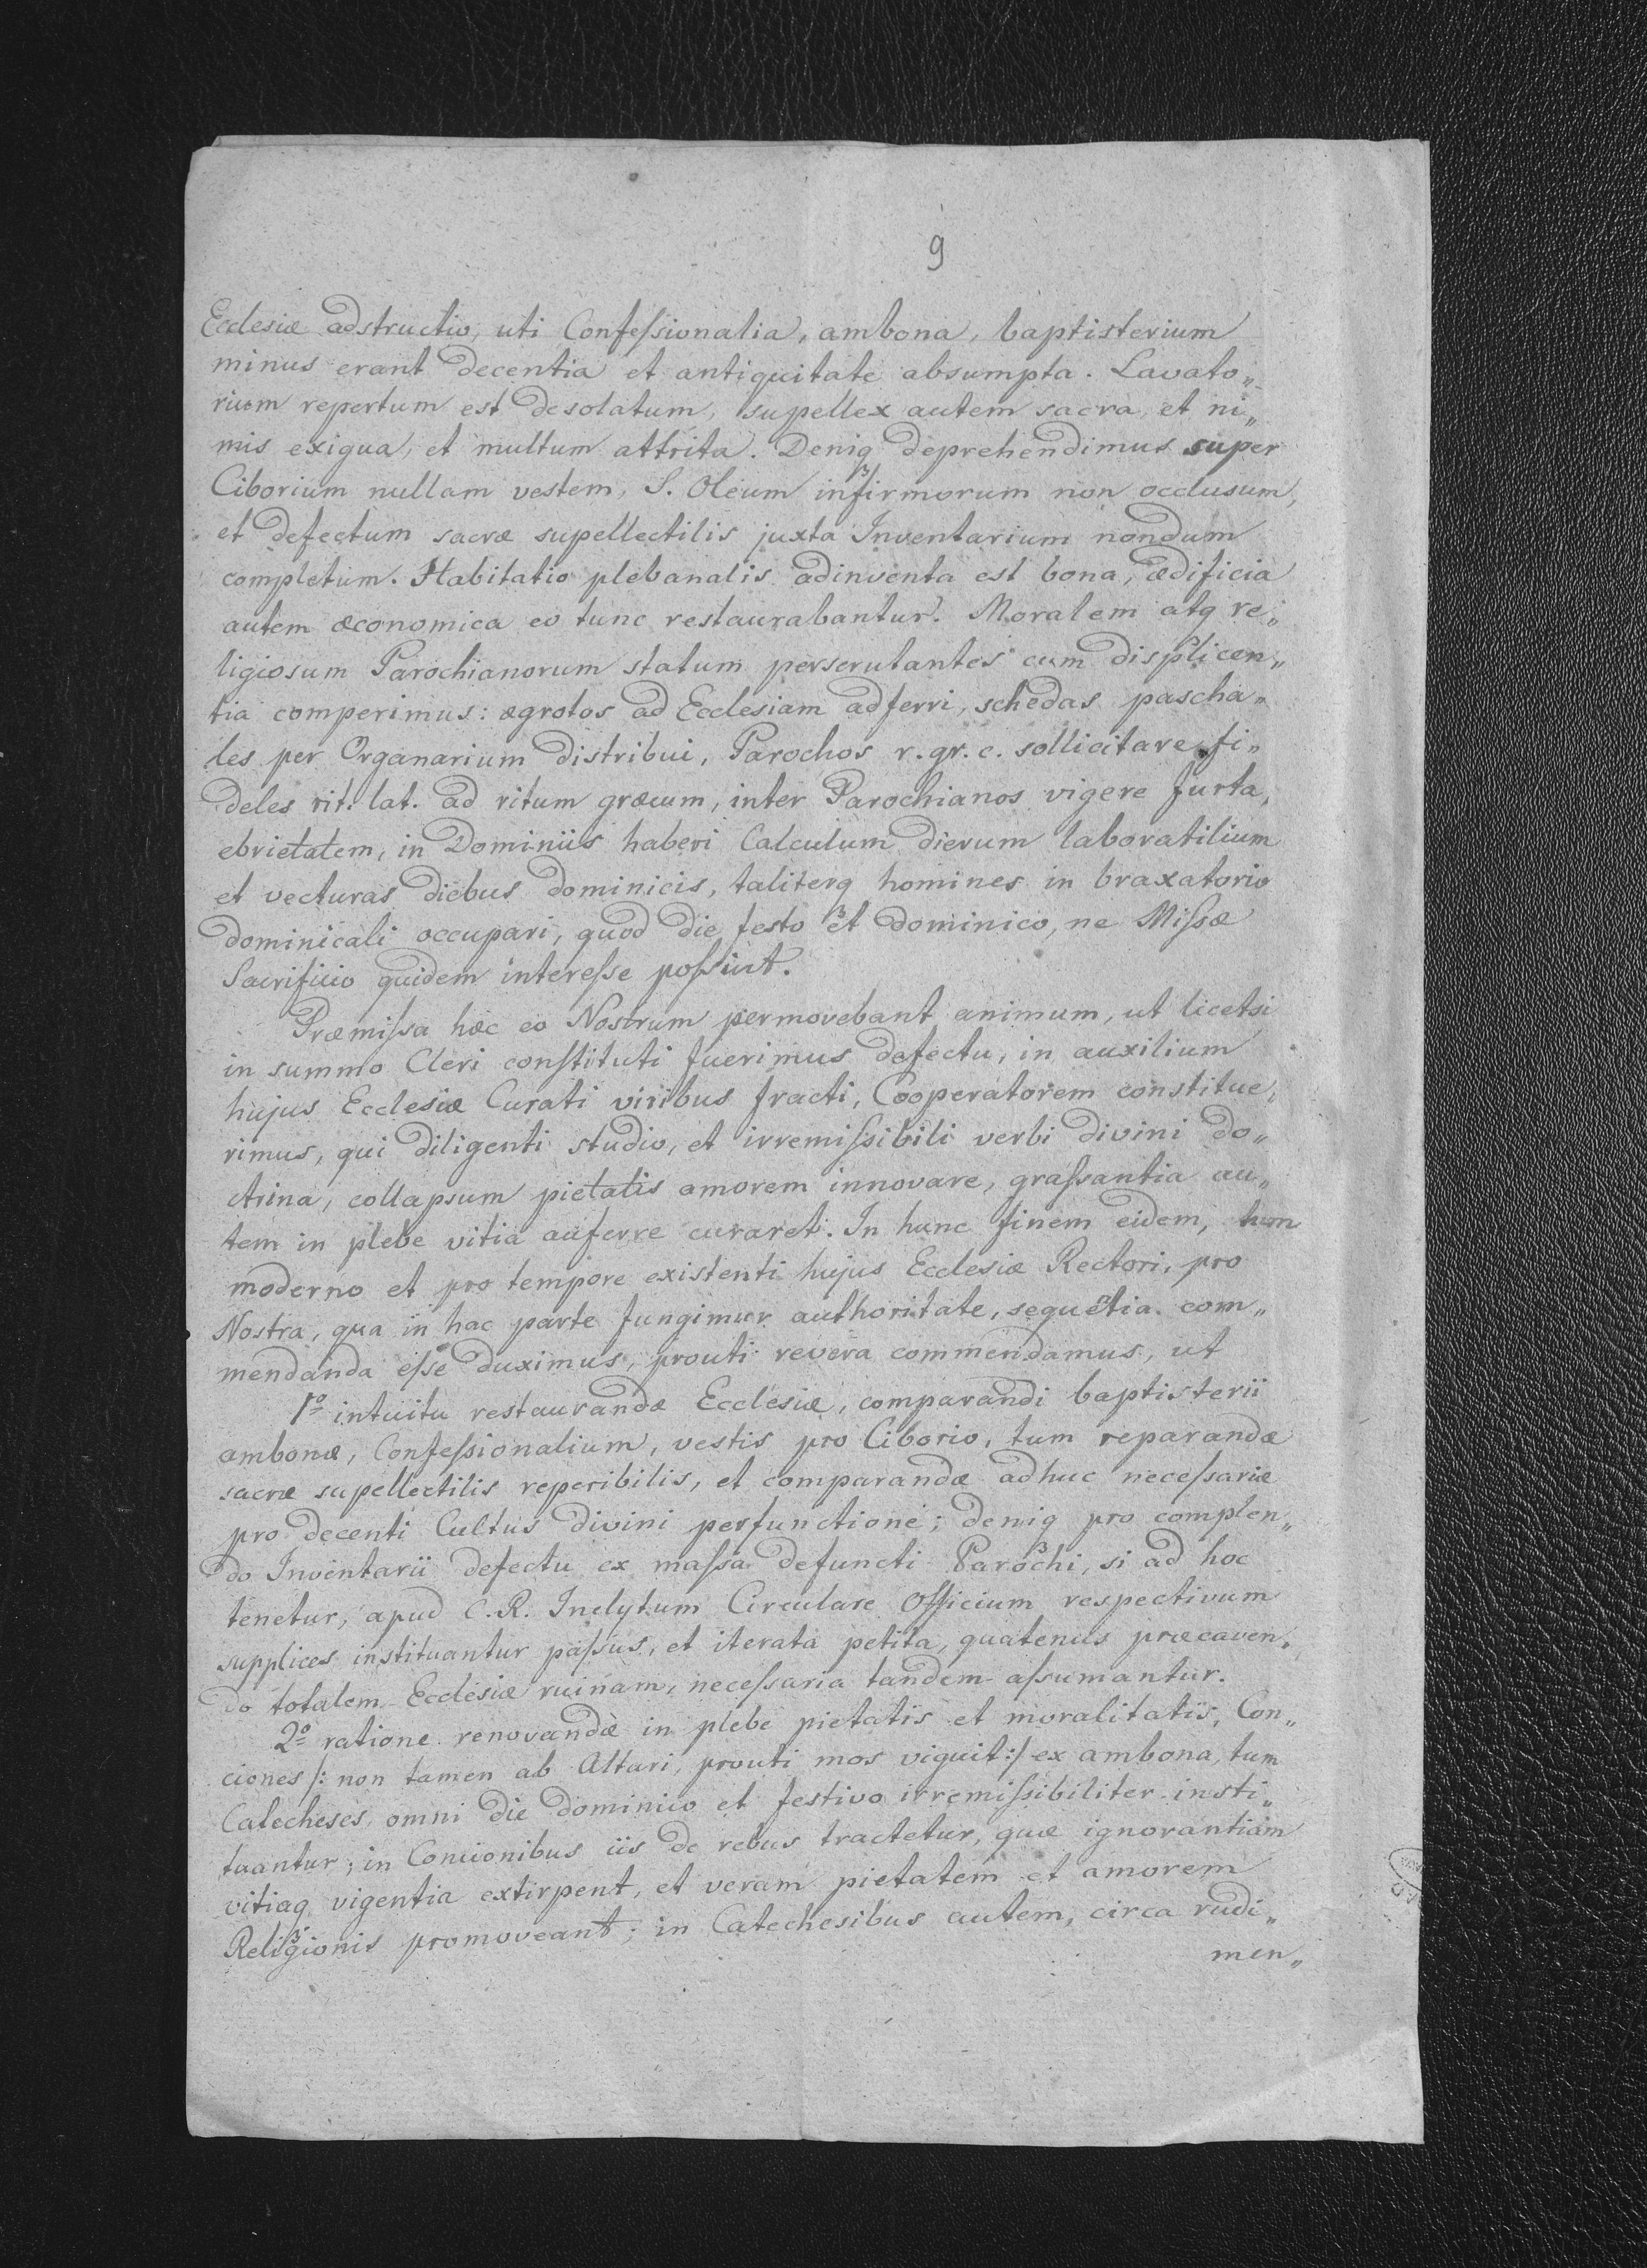 9
Ecclesiæ adstructio, uti Confeſsionalia, ambona, baptisterium
minus erant decentia et antiquitate absumpta. Lavato„
rium repertum est desolatum, supellex autem sacra, et ni„
mis exigua, et multum attrita. Deniq3 deprehendimus super
Ciborium nullam vestem, S. Oleum infirmorum non occlusum,
et defectum sacræ supellectilis juxta Inventarium nondum
completum. Habitatio plebanalis adinventa est bona, ædificia
autem œconomica eo tunc restaurabantur. Moralem atq re„
ligiosum Parochianorum statum perscrutantes cum displicen„
tia comperimus: ægrotos ad Ecclesiam adferri, schedas pascha„
les per Organarium distribui, Parochos r. gr. c. sollicitare fi„
deles rit. lat. ad ritum græcum, inter Parochianos vigere furta,
ebrietatem, in Dominiis haberi Calculum dierum laboratilium
et vecturas diebus dominicis, taliterq3 homines in braxatorio
dominicali occupari, quod die festo et dominico, ne Miſsæ
Sacrificio quidem intereſse poſsint.
Præmiſsa hæc eo Nostrum permovebant animum, ut licetsi
in summo Cleri conſtituti fuerimus defectu, in auxilium
hujus Ecclesiæ Curati viribus fracti, Cooperatorem constitue„
rimus, qui diligenti studio, et irremiſsibili verbi divini do„
ctrina, collapsum pietatis amorem innovare, graſsantia au„
tem in plebe vitia auferre curaret. In hunc finem eidem, tum
moderno et pro tempore existenti hujus Ecclesiæ Rectori, pro
Nostra, qua in hac parte fungimur authoritate, sequẽtia com„
mendanda eſse duximus, prouti revera commendamus, ut
1º intuitu restaurandæ Ecclesiæ, comparandi baptisterii
ambonæ, Confeſsionalium, vestis pro Ciborio, tum reparandæ
sacræ supellectilis reperibilis, et comparandæ adhuc neceſsariæ
pro decenti Cultus divini perfunctione; deniq3 pro complen„
do Inventarii defectu ex maſsa defuncti Parochi, si ad hoc
tenetur, apud C. R. Inclytum Circulare Officium respectivum
supplices instituantur paſsus, et iterata petita, quatenus præcaven„
do totalem Ecclesiæ ruinam, neceſsaria tandem aſsumantur.
2º ratione renovandæ in plebe pietatis et moralitatis, Con„
ciones /: non tamen ab Altari, prouti mos viguit :/ ex ambona, tum
Catecheses, omni die dominico et festivo irremiſsibiliter insti„
tuantur; in Concionibus iis de rebus tractetur, quæ ignorantiam
vitiaq3 vigentia extirpent, et veram pietatem et amorem
Religionis promoveant; in Catechesibus autem, circa rudi„
men„